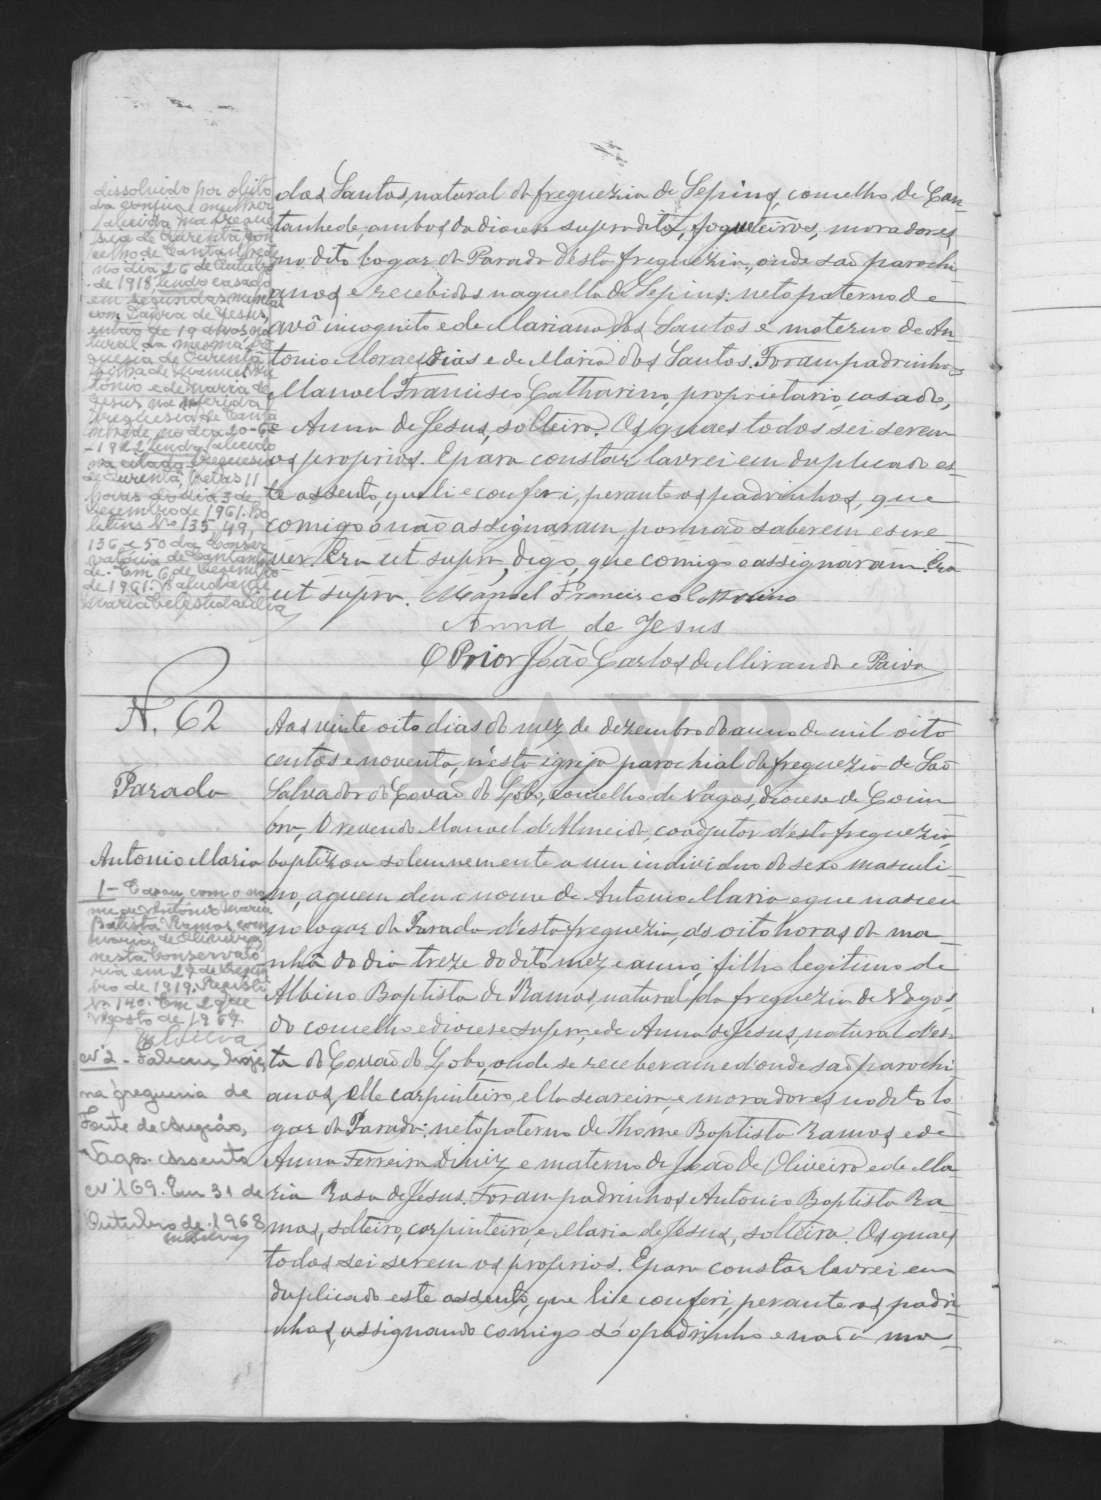 dissolvido por obito
da conjuge mulher
falecida na fregue
sia de Ourentã con
celho de Cantanhede
no dia 26 de Outubro
de 1918 tendo casado
em segundas nupcias
com Laura de Jesus,
então de 19 anos na
tural da mesma fre
guesia de Ourentã
filha de Manuel An
tonio e de Maria de
Jesus na referida
freguesia de Canta
nhede no dia
tendo falecido
na citada freguesia
de Ourentã, pelas 11
horas do dia 3 de
Dezembro de 1961. Bo
letins Nº 135, 49,
136 e 50 da Conser
vatoria de Cantanhe
de. Em 6 de Dezembro
de 1961.
Maria Celeste da Silva
dos Santos, natural da freguezia de Sepins, concelho de Can-
tanhede, ambos da diocese supradita, fogueteiros, moradores
no dito logar da Parada d'esta freguezia, onde são parochi
anos e recebidos naquella de Sepins: neto paterno de
avô incognito e de Marianna dos Santos e materno de An-
tonio Moraes Dias e de Maria dos Santos. Foram padrinhos
Manoel Francisco Catharino, proprietario, casado,
e Anna de Jesus, solteira. Os quaes todos sei serem
os proprios. E para constar lavrei em duplicado es-
te assento, que li e conferi, perante os padrinhos, que
comigo o não assignaram, por não saberem escre-
ver. Era ut supra, digo, que comigo o assignaram. Era
ut supra. Manuel Francisco Catharino
Anna de Jesus
O Prior João Carlos de Miranda e Paiva
N. 62
Parada
Antonio Maria
1 – Casou com o no
me de António Maria
Batista Ramos com
Maria de Oliveira
nesta Conservató
ria em 27 de
bro de 1919. Registo
Nº 140. Em 2 de
Agosto de 1967
MSilva
Nº 2 - Faleceu hoje,
na freguesia de
Fonte de Angeão,
Vagos. Assento
Nº 169. Em 31 de
Outubro de 1968
MSilva
Aos vinte oito dias do mez de dezembro do anno de mil oito
centos e noventa, n'esta igreja parochial da freguezia de São
Salvador do Covão do Lobo, concelho de Vagos, diocese de Coim
bra, O revendo Manoel d'Almeida, coadjutor d'esta freguezia,
baptizou solemnemente a um individuo do sexo masculi-
no, a quem deu o nome de Antonio Maria e que nasceu
no logar da Parada d'esta freguezia, ás oito horas da ma-
nhã do dia treze do dito mez e anno, filho legitimo de
Albino Baptista de Ramos, natural da freguezia de Vagos,
do concelho e diocese supra, e de Anna de Jesus, natural d'es-
ta do Covão do Lobo, onde se receberam e d'onde são parochi
anos, elle carpinteiro, ella seareira, e moradores no dito lo-
gar da Parada: neto paterno de Thome Baptista Ramos e de
Anna Ferreira Diniz e materno de João de Oliveira e de Ma-
ria Rosa de Jesus. Foram padrinhos Antonio Baptista Ra-
mos, solteiro, carpinteiro, e Maria de Jesus, solteira. Os quaes
todos sei serem os proprios. E para constar lavrei em
duplicado este assento, que li e conferi, perante os padri-
nhos, assignando comigo só o padrinho e não a ma-
ADAVR